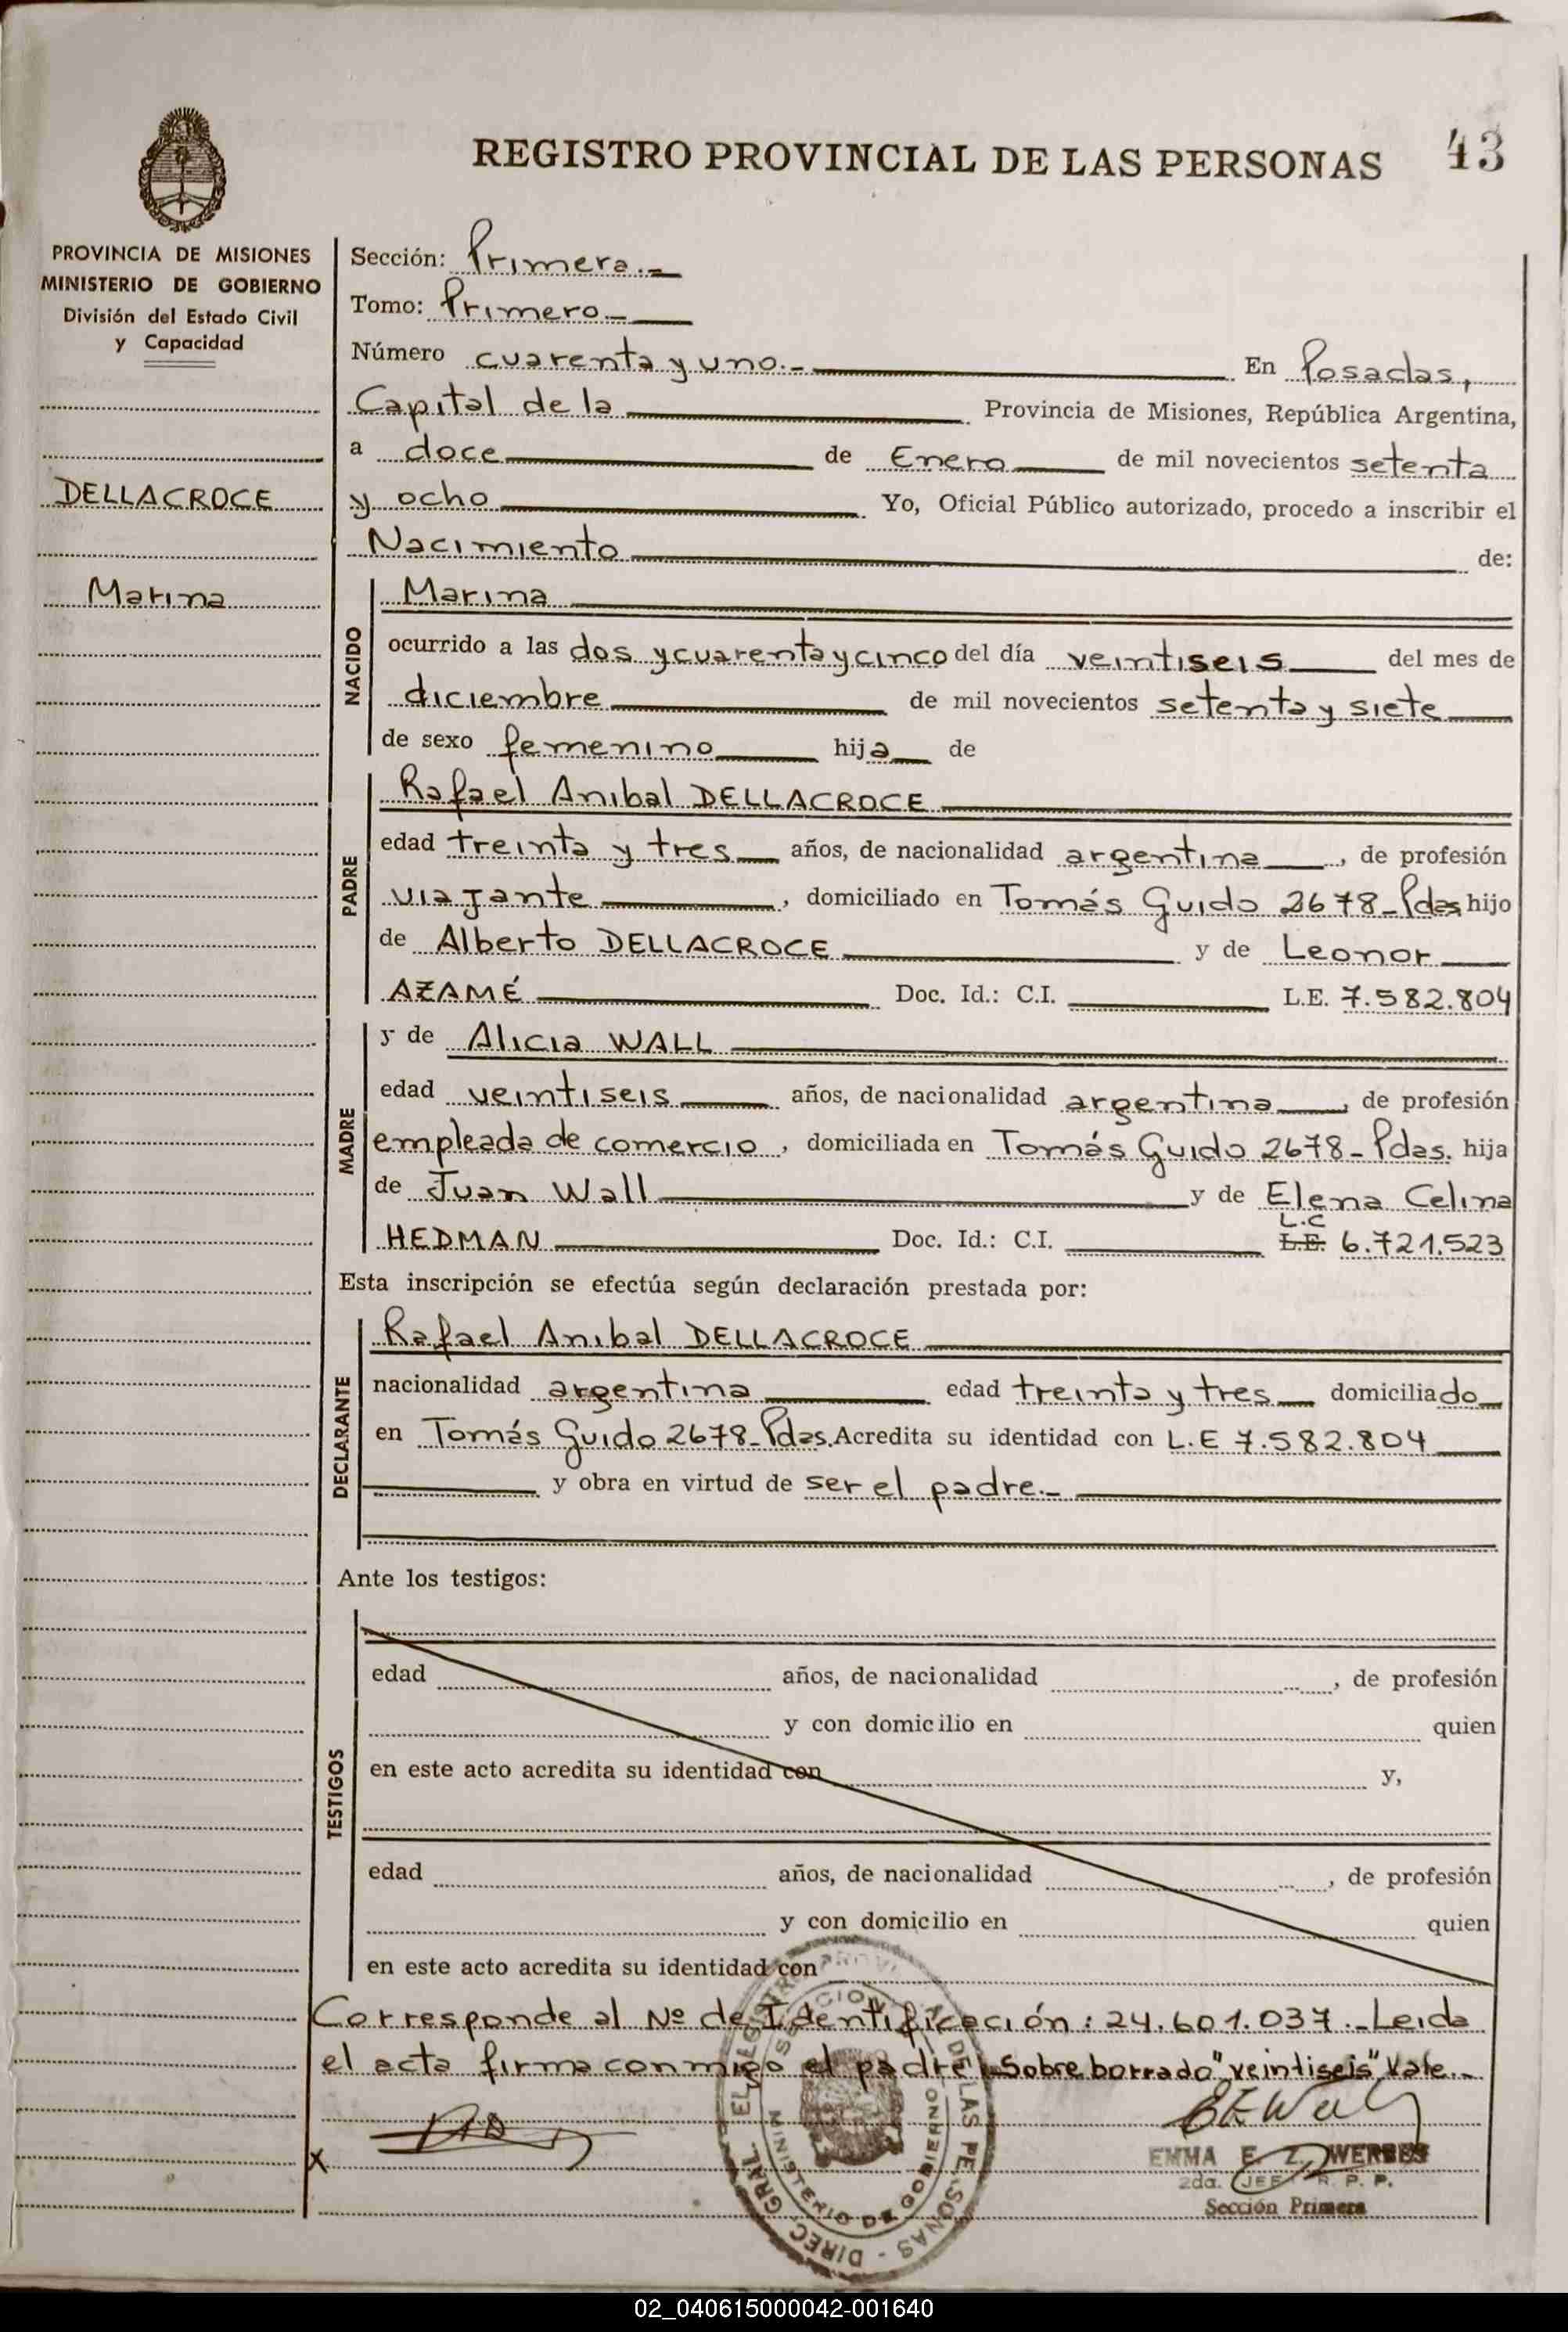 REGISTRO PROVINCIAL DE LAS PERSONAS 43
PROVINCIA DE MISIONES
MINISTERIO DE GOBIERNO
División del Estado Civil
y Capacidad
DELLACROCE
Marina
Sección: Primera.-
Tomo: Primero-
Número cuarenta y uno.- En Posadas,
Capital de la Provincia de Misiones, República Argentina,
a doce de Enero de mil novecientos setenta
y ocho Yo, Oficial Público autorizado, procedo a inscribir el
Nacimiento de:
NACIDO
Marina
ocurrido a las dos y cuarenta y cinco del día veintiseis del mes de
diciembre de mil novecientos setenta y siete
de sexo femenino hija de
PADRE
Rafael Anibal DELLACROCE
edad treinta y tres años, de nacionalidad argentina, de profesión
viajante, domiciliado en Tomás Guido 2678-Pdas hijo
de Alberto DELLACROCE y de Leonor
AZAMÉ Doc. Id.: C.I. L.E. 7.582.804
MADRE
y de Alicia WALL
edad veintiseis años, de nacionalidad argentina, de profesión
empleada de comercio, domiciliada en Tomás Guido 2678-Pdas. hija
de Juan Wall y de Elena Celina
L.C
HEDMAN Doc. Id.: C.I. L.E. 6.721.523
Esta inscripción se efectúa según declaración prestada por:
DECLARANTE
Rafael Anibal DELLACROCE
nacionalidad argentina edad treinta y tres domiciliado
en Tomás Guido 2678-Pdas. Acredita su identidad con L.E 7.582.804
y obra en virtud de ser el padre.-
Ante los testigos:
TESTIGOS
edad años, de nacionalidad , de profesión
y con domicilio en quien
en este acto acredita su identidad con y,
edad años, de nacionalidad , de profesión
y con domicilio en quien
en este acto acredita su identidad con
Corresponde al Nº de Identificación: 24.601.037.-Leida
el acta firma conmigo el padre. Sobre borrado "veintiseis" Vale.-
X
EMMA E. Z. WERBES
2da. JEFE R. P. P.
Sección Primera
MINISTERIO DE GOBIERNO
02_040615000042-001640